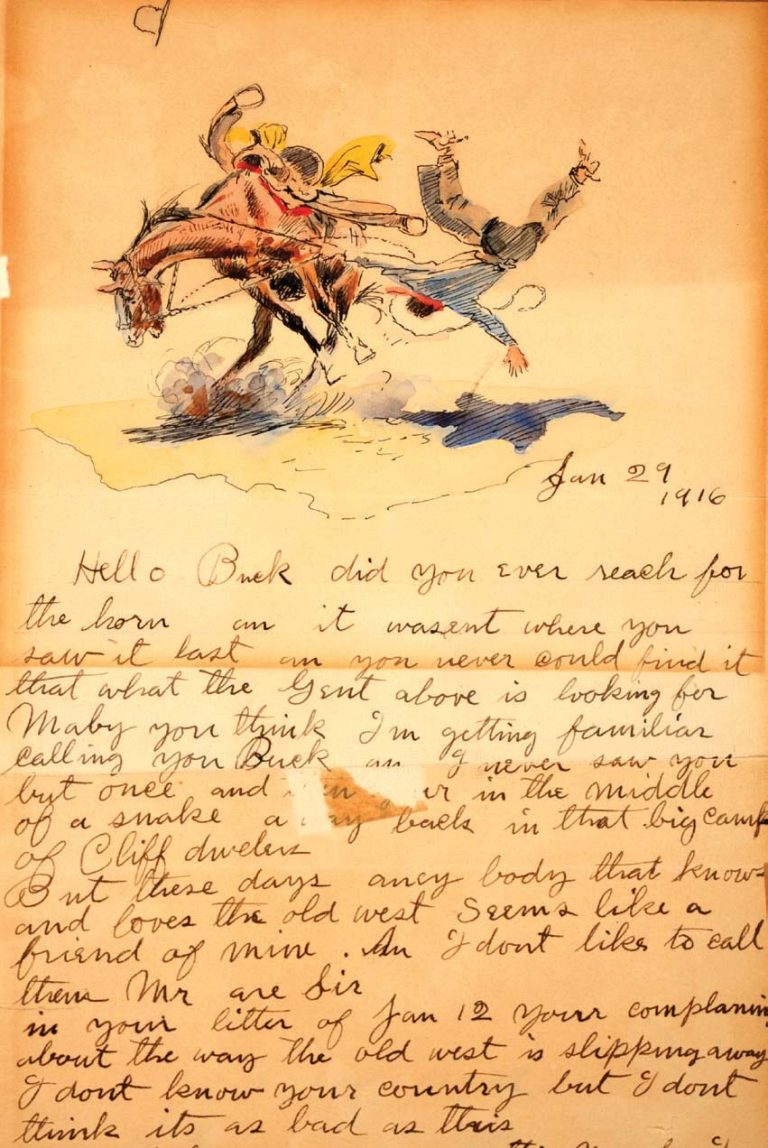 Jan 29
1916
Hello Buck did you ever reach for
the horn an it wasent where you
saw it last an you never could find it
that what the Gent above is looking for
Maby you think I'm getting familiar
calling you Buck an I never saw you
but once and in the middle
of a snake back in that big camp
of Cliff dwelers
But these days aney body that knows
and loves the old west Seems like a
friend of mine. An I dont like to call
them Mr are Sir
in your litter of Jan 12 your complaning
about the way the old west is slipping away
I dont know your country but I dont
think its as bad as this